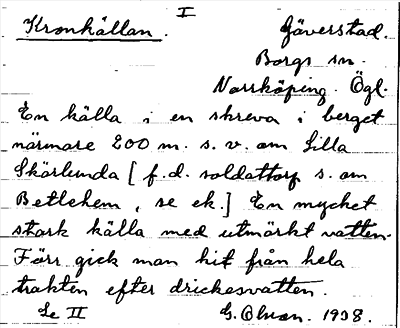 I
Kronkällan. Gäverstad.
Borgs sn.
Norrköping. Ögl.
En källa i en skreva i berget
närmare 200 m. s. v. om Lilla
Skärlunda [f.d. soldattorp s. om
Betlehem, se ek.] En mycket
stark källa med utmärkt vatten.
Förr gick man hit från hela
trakten efter dricksvatten.
Se II G. Olsson. 1938.